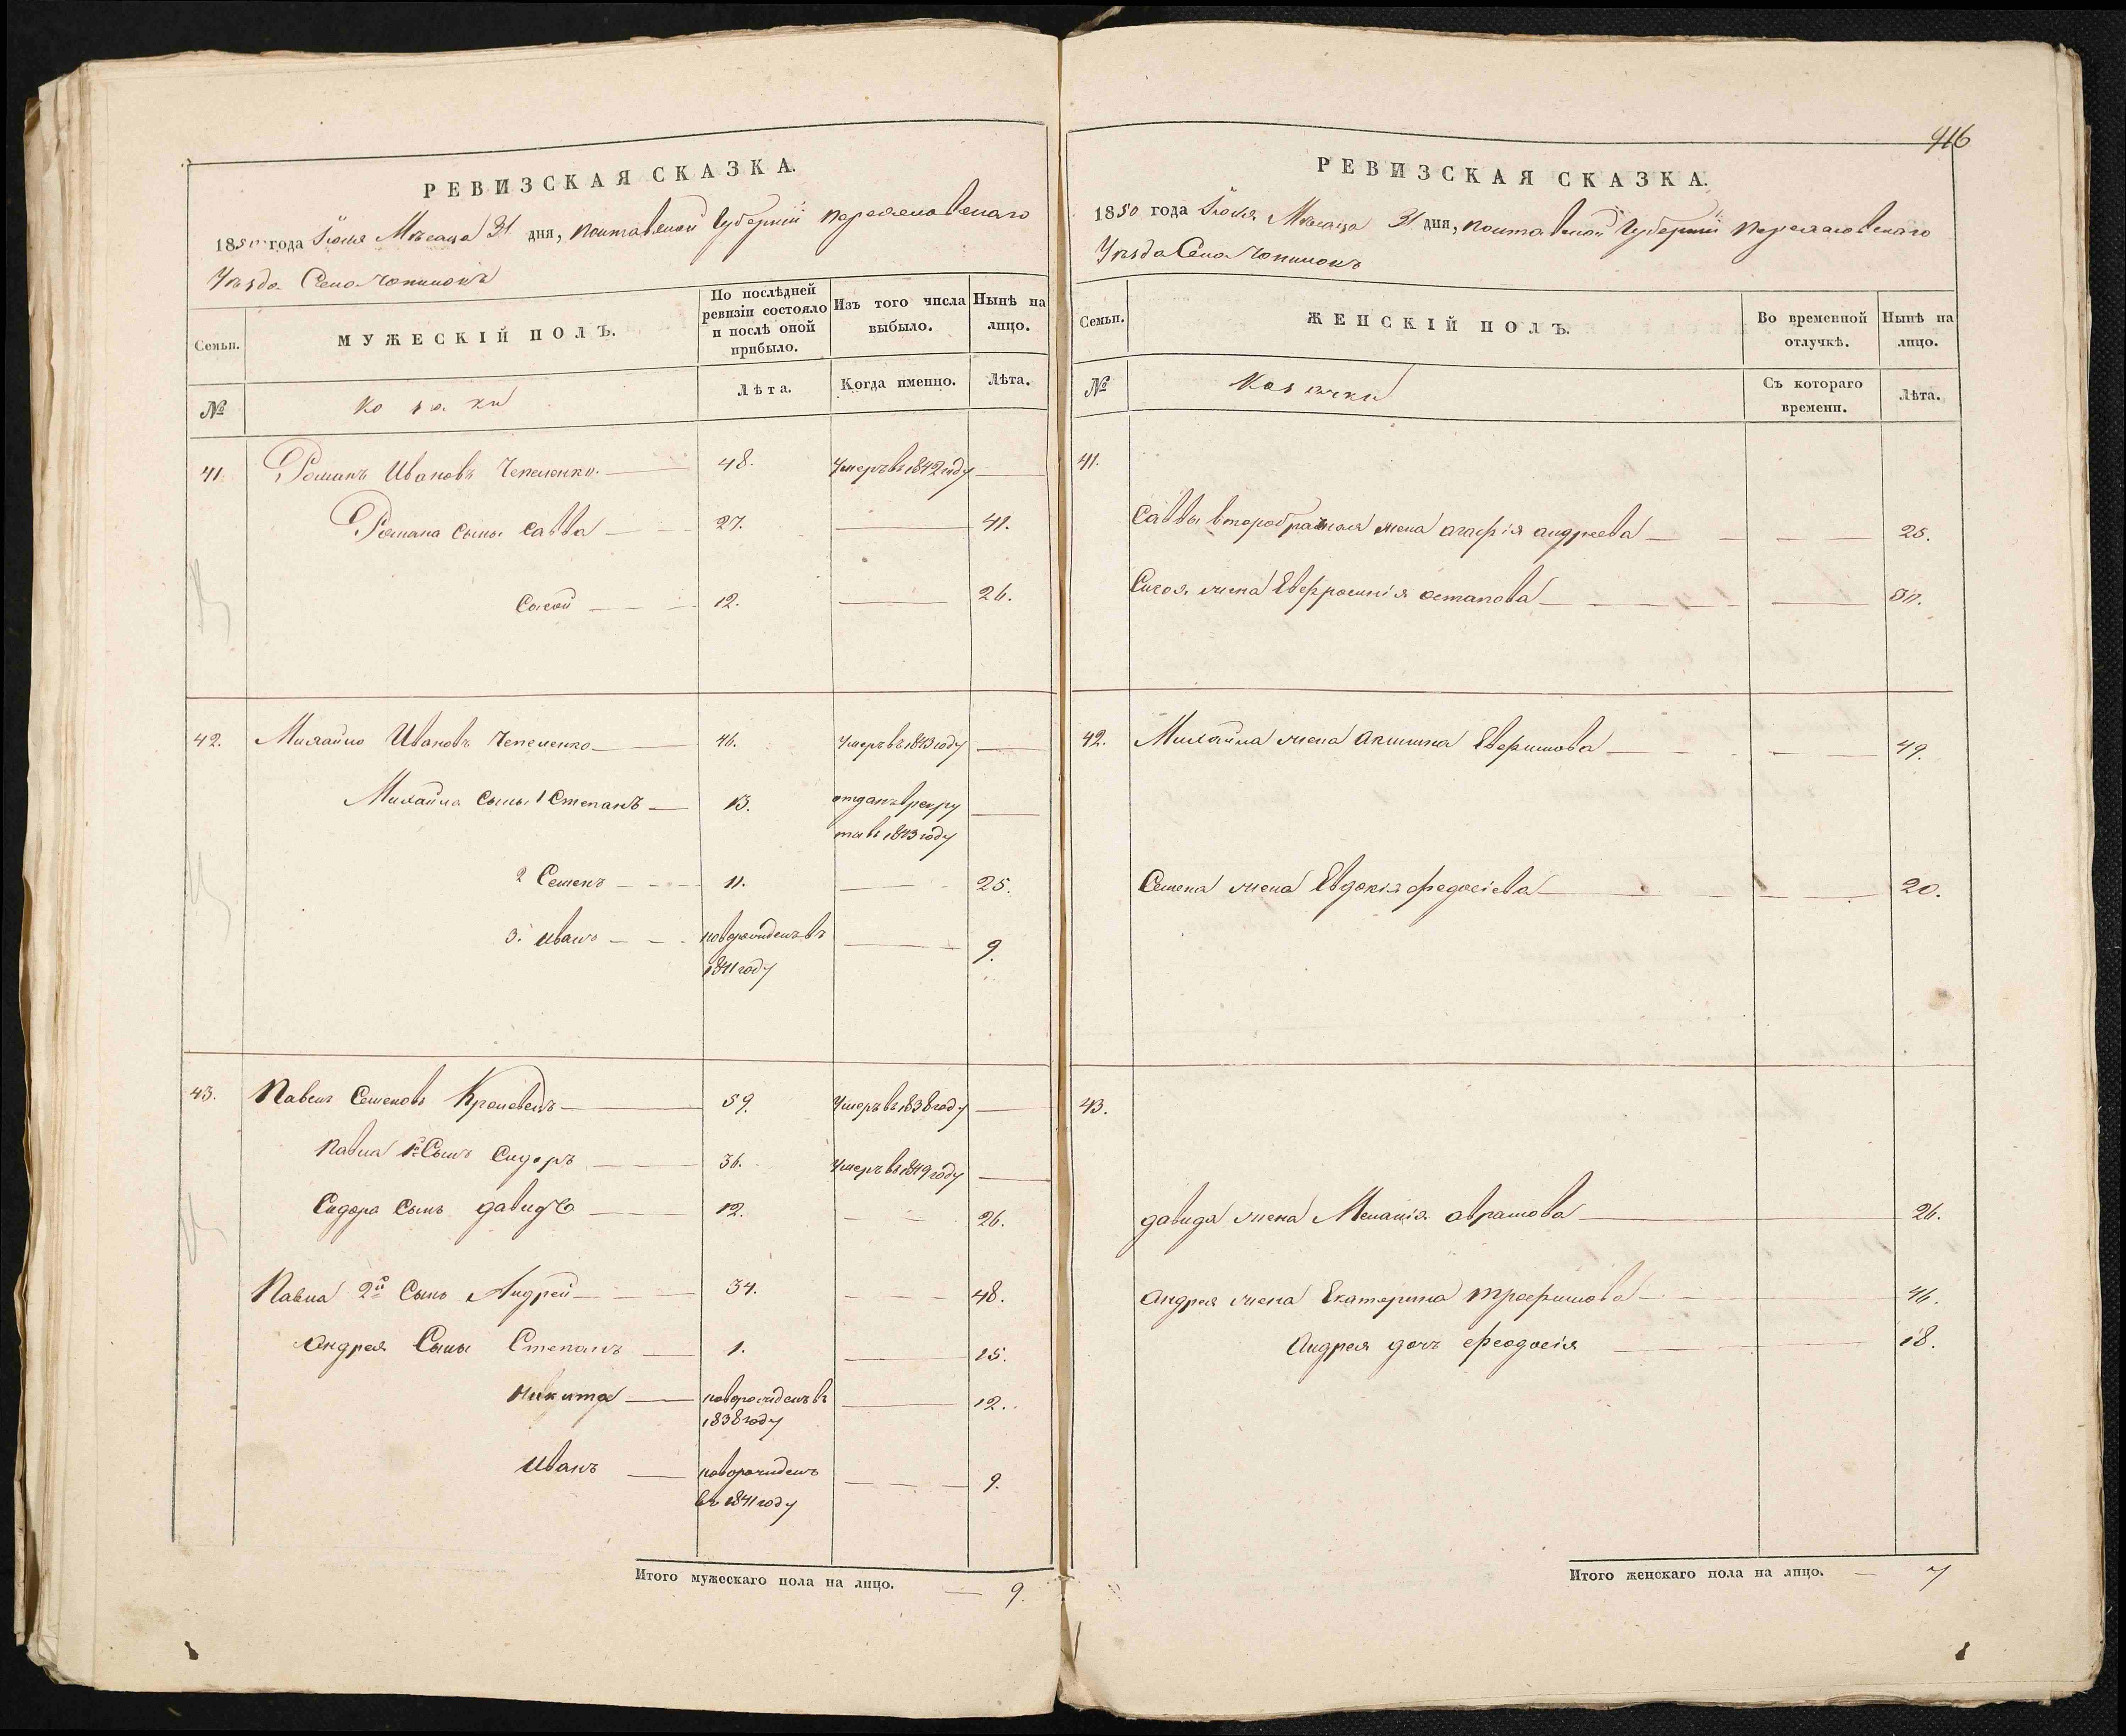 РЕВИЗСКАЯ СКАЗКА.
1850 года Іюля Мѣсяца 31 дня, Полтавской Губерніи Переяславскаго
Уѣзда Села Чопилокъ
Семьи.
МУЖЕСКІЙ ПОЛЪ.
По послѣдней ревизіи состояло и послѣ оной прибыло.
Изъ того числа выбыло.
Нынѣ на лицо.
№
Козаки
Лѣта.
Когда именно.
Лѣта.
41. Романъ Ивановъ Чепеленко. 48. Умеръ въ 1842 году
Романа Сыны Савва 27. 41.
Сысой 12. 26.
42. Михайло Ивановъ Чепеленко 46. Умеръ въ 1843 году
Михайла Сыны 1 Степанъ 13. отданъ в рекру
ты въ 1843 году
2 Семенъ 11. 25.
3. Иванъ новорожденъ въ 9.
1841 году
43. Павелъ Семеновъ Кролевецъ 59. Умеръ въ 1838 году
Павла 1й Сынъ Сидоръ 36. Умеръ въ 1849 году
Сидора Сынъ давидъ 12. 26.
Павла 2й Сынъ Андрей 34. 48.
Андрея Сыны Степанъ 1. 15.
Никита новорожденъ въ 12.
1838 году
Иванъ новорожденъ 9.
въ 1841 году
Итого мужескаго пола на лицо. 9.
416
РЕВИЗСКАЯ СКАЗКА.
1850 года Іюля Мѣсяца 31 дня, Полтавской Губерніи Переяславскаго
Уѣзда Села Чопилокъ
Семьи.
ЖЕНСКІЙ ПОЛЪ.
Во временной отлучкѣ.
Нынѣ на лицо.
№
Козачки
Съ котораго времени.
Лѣта.
41.
Саввы второбрачная жена агафія андреева 25.
Сысоя жена Евфросинія остапова
42. Михайла жена акилина Ефимова 49.
Семена жена Евдокія федосіева 20.
43.
давида жена Меланія аврамова 26.
Андрея жена Екатерина трофимова 46.
Андрея дочь феодосія 18.
Итого женскаго пола на лицо. 7